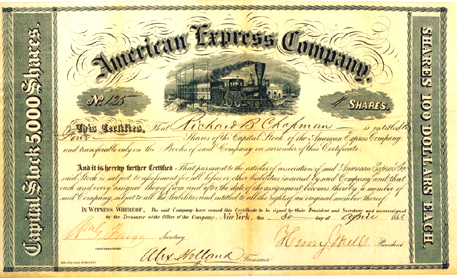 American Express Company.
Capital Stock 5,000 Shares.
SHARES 100 DOLLARS EACH
No. 125
4 SHARES
This Certifies, That Richard B Chapman is entitled to
Four Shares of the Capital Stock of the American Express Company
and transferable only on the Books of said Company on surrender of this Certificate.
And it is hereby further Certified - That pursuant to the articles of association of said American Express Co.
said Stock is subject to assessment for all losses or other liabilities incurred by said Company and that
each and every assignee thereof from and after the date of the assignment becomes thereby a member of
said Company subject to all the liabilities and entitled to all the rights of an original member thereof
IN WITNESS WHEREOF, The said Company have caused this Certificate to be signed by their President and Secretary and countersigned
by the Treasurer at the Office of the Company, New York, this day of April 185
Secretary
Henry Wells President
Alex Holland Treasurer